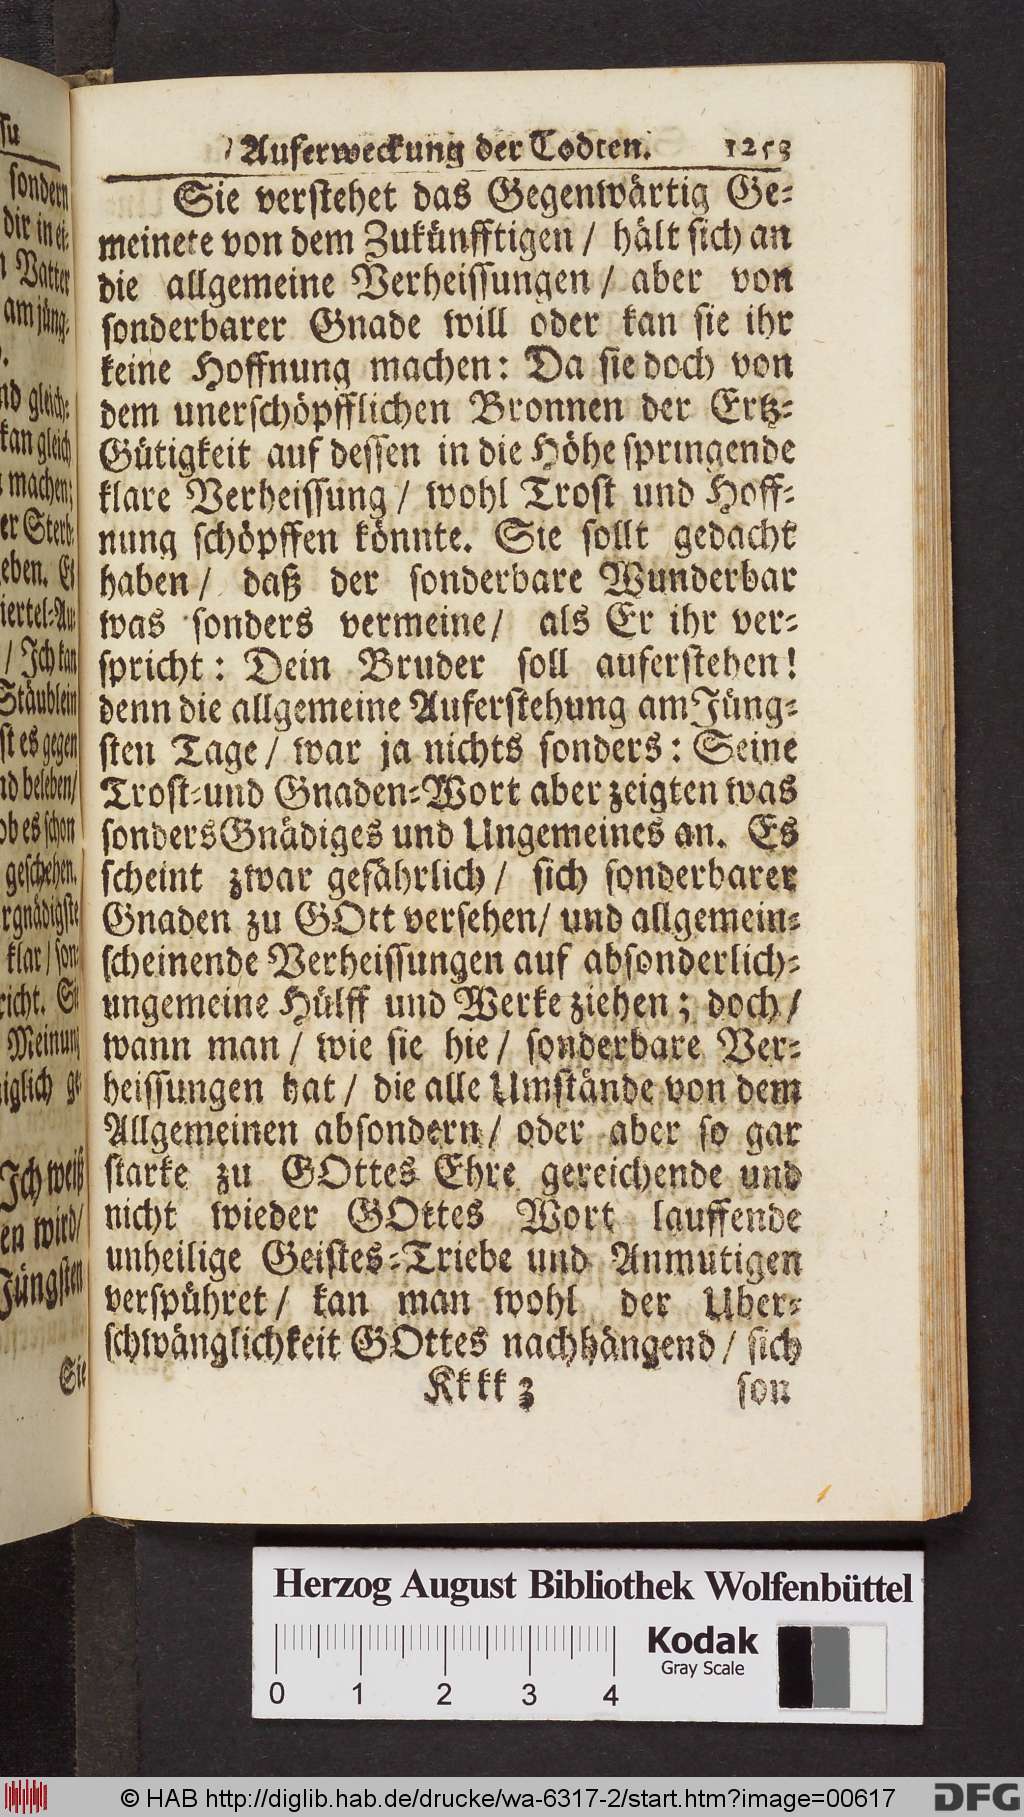 su
sondern
dir in ei-
Vatter
am jüng-
nd gleich-
kan gleich
machen;
er Sterb-
eben. Er
iertel-Au-
/ Ich kan
Stäublein
st es gegen
nd beleben/
ob es schon
geschehen.
rgnädigste
klar / son-
richt. Sie
Meinung
niglich ge-
Ich weiß
en wird/
Jüngsten
Sie
Auferweckung der Todten. 1253
Sie verstehet das Gegenwärtig Ge-
meinete von dem Zukünfftigen / hält sich an
die allgemeine Verheissungen / aber von
sonderbarer Gnade will oder kan sie ihr
keine Hoffnung machen: Da sie doch von
dem unerschöpfflichen Bronnen der Ertz-
Gütigkeit auf dessen in die Höhe springende
klare Verheissung / wohl Trost und Hoff-
nung schöpffen könnte. Sie sollt gedacht
haben / daß der sonderbare Wunderbar
was sonders vermeine / als Er ihr ver-
spricht: Dein Bruder soll auferstehen!
denn die allgemeine Auferstehung am Jüng-
sten Tage / war ja nichts sonders: Seine
Trost-und Gnaden-Wort aber zeigten was
sonders Gnädiges und Ungemeines an. Es
scheint zwar gefährlich / sich sonderbarer
Gnaden zu GOtt versehen / und allgemein-
scheinende Verheissungen auf absonderlich-
ungemeine Hülff und Werke ziehen; doch /
wann man / wie sie hie / sonderbare Ver-
heissungen hat / die alle Umstände von dem
Allgemeinen absondern / oder aber so gar
starke zu GOttes Ehre gereichende und
nicht wieder GOttes Wort lauffende
unheilige Geistes-Triebe und Anmutigen
verspühret / kan man wohl der Uber-
schwänglichkeit GOttes nachhängend / sich
Kkkk 3 son
Herzog August Bibliothek Wolfenbüttel
Kodak
Gray Scale
0 1 2 3 4
© HAB http://diglib.hab.de/drucke/wa-6317-2/start.htm?image=00617
DFG